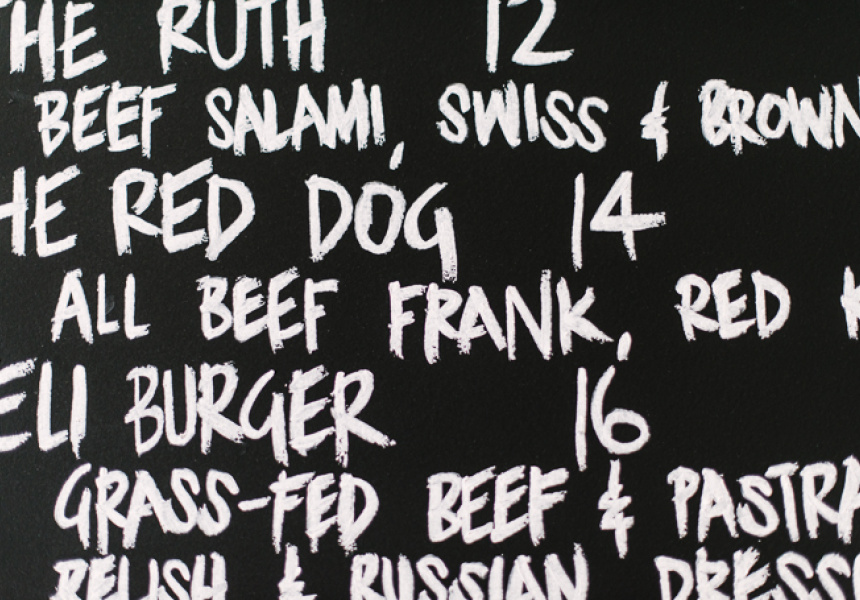 THE RUTH 12
BEEF SALAMI, SWISS & BROWN
HE RED DOG 14
ALL BEEF FRANK, RED
ELI BURGER 16
GRASS-FED BEEF & PASTRA
RELISH & RUSSIAN DRESS